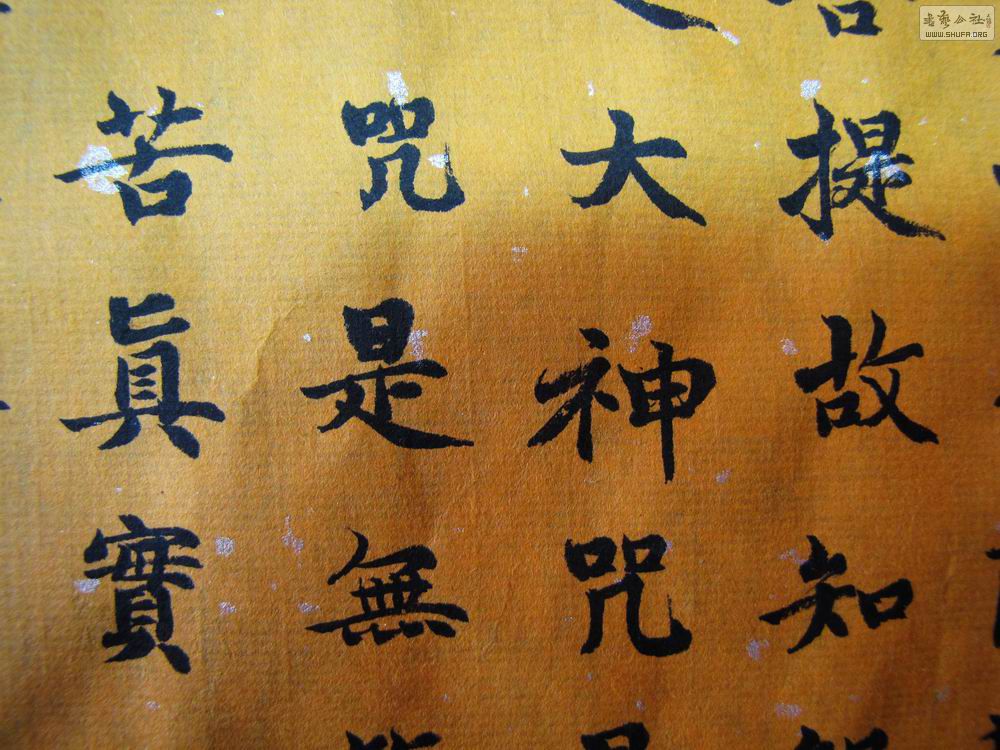 提故知
大神咒
咒是無
苦真實
书艺公社
WWW.SHUFA.ORG